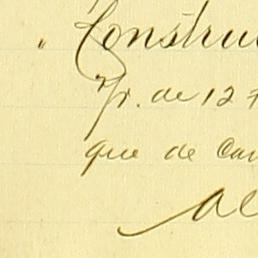 " Constru
Yr. de 12
que de Can
Al